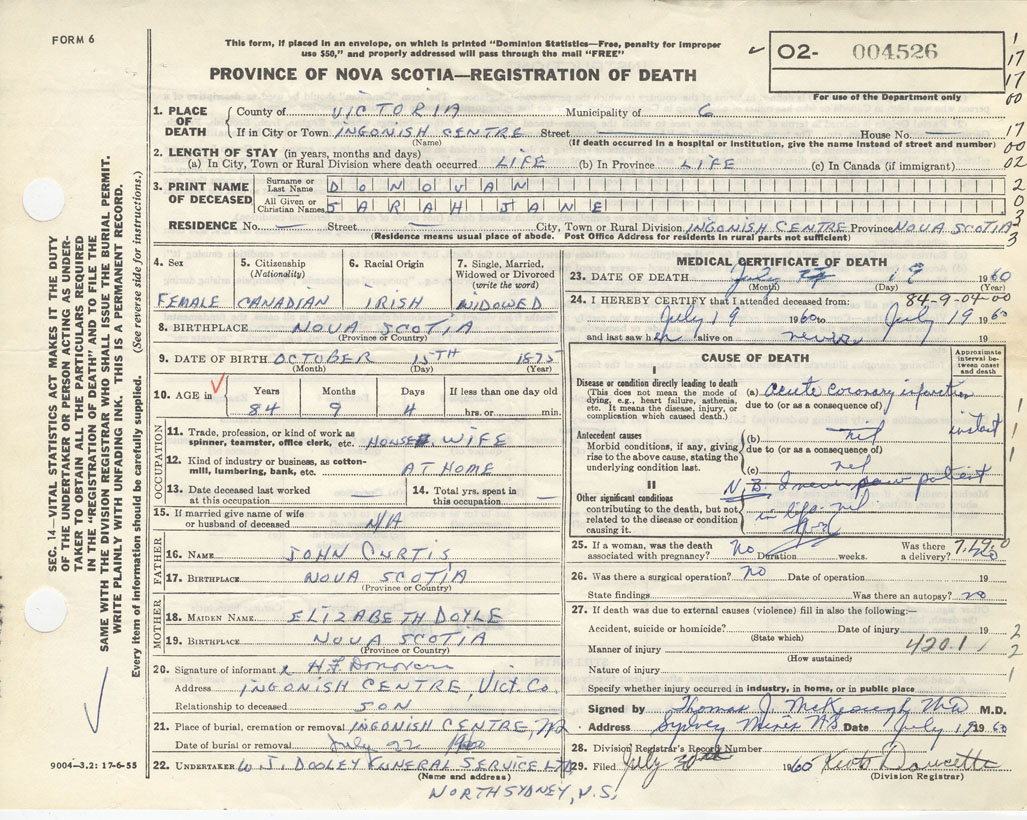 FORM 6
This form, if placed in an envelope, on which is printed "Dominion Statistics—Free, penalty for improper
use $50," and properly addressed will pass through the mail "FREE"
02- 004526
For use of the Department only
PROVINCE OF NOVA SCOTIA—REGISTRATION OF DEATH
1. PLACE OF DEATH County of VICTORIA Municipality of 6
If in City or Town INGONISH CENTRE Street — House No. —
(Name) (If death occurred in a hospital or institution, give the name instead of street and number)
2. LENGTH OF STAY (in years, months and days)
(a) In City, Town or Rural Division where death occurred LIFE (b) In Province LIFE (c) In Canada (if immigrant)
3. PRINT NAME OF DECEASED Surname or Last Name DONOVAN
All Given or Christian Names SARAH JANE
RESIDENCE No. — Street — City, Town or Rural Division INGONISH CENTRE Province NOVA SCOTIA
(Residence means usual place of abode. Post Office Address for residents in rural parts not sufficient)
4. Sex FEMALE
5. Citizenship (Nationality) CANADIAN
6. Racial Origin IRISH
7. Single, Married, Widowed or Divorced (write the word) WIDOWED
8. BIRTHPLACE NOVA SCOTIA
(Province or Country)
9. DATE OF BIRTH OCTOBER 15TH 1875
(Month) (Day) (Year)
10. AGE in Years 84 Months 9 Days 4 If less than one day old hrs. or min.
OCCUPATION
11. Trade, profession, or kind of work as spinner, teamster, office clerk, etc. HOUSE WIFE
12. Kind of industry or business, as cotton-mill, lumbering, bank, etc. AT HOME
13. Date deceased last worked at this occupation —
14. Total yrs. spent in this occupation —
15. If married give name of wife or husband of deceased N/A
FATHER
16. NAME JOHN CURTIS
17. BIRTHPLACE NOVA SCOTIA
(Province or Country)
MOTHER
18. MAIDEN NAME ELIZABETH DOYLE
19. BIRTHPLACE NOVA SCOTIA
(Province or Country)
20. Signature of informant x H F Donovan
Address INGONISH CENTRE, Vict. Co.
Relationship to deceased SON
21. Place of burial, cremation or removal INGONISH CENTRE
Date of burial or removal July 22 1960
22. UNDERTAKER W J. DOOLEY FUNERAL SERVICE LTD
(Name and address)
NORTH SYDNEY, N.S.
MEDICAL CERTIFICATE OF DEATH
23. DATE OF DEATH July 19 1960
(Month) (Day) (Year)
84-9-04-00
24. I HEREBY CERTIFY that I attended deceased from:
July 19 1960 to July 19 1960
and last saw her alive on never 19
CAUSE OF DEATH
Approximate interval between onset and death
I
Disease or condition directly leading to death
(This does not mean the mode of dying, e.g., heart failure, asthenia, etc. It means the disease, injury, or complication which caused death.)
(a) acute coronary infarction
due to (or as a consequence of)
instant
Antecedent causes
Morbid conditions, if any, giving rise to the above cause, stating the underlying condition last.
(b) nil
due to (or as a consequence of)
(c) nil
II
Other significant conditions
contributing to the death, but not related to the disease or condition causing it.
N.B. I never saw patient
in life- nil
25. If a woman, was the death associated with pregnancy? No Duration weeks. Was there a delivery? no
26. Was there a surgical operation? no Date of operation 19
State findings Was there an autopsy? no
27. If death was due to external causes (violence) fill in also the following:—
Accident, suicide or homicide? Date of injury 19
(State which)
Manner of injury 420.1
(How sustained)
Nature of injury
Specify whether injury occurred in industry, in home, or in public place
Signed by Thomas J. McKeough MD M.D.
Address Sydney Mines NS Date July 19 1960
28. Division Registrar's Record Number
29. Filed July 30th 1960 Doucette
(Division Registrar)
SEC. 14—VITAL STATISTICS ACT MAKES IT THE DUTY
OF THE UNDERTAKER OR PERSON ACTING AS UNDER-
TAKER TO OBTAIN ALL THE PARTICULARS REQUIRED
IN THE "REGISTRATION OF DEATH" AND TO FILE THE
SAME WITH THE DIVISION REGISTRAR WHO SHALL ISSUE THE BURIAL PERMIT.
WRITE PLAINLY WITH UNFADING INK. THIS IS A PERMANENT RECORD.
Every item of information should be carefully supplied. (See reverse side for instructions.)
9004—3.2: 17-6-55
1
17
17
00
17
00
02
2
0
3
3
1
1
1
2
2
1